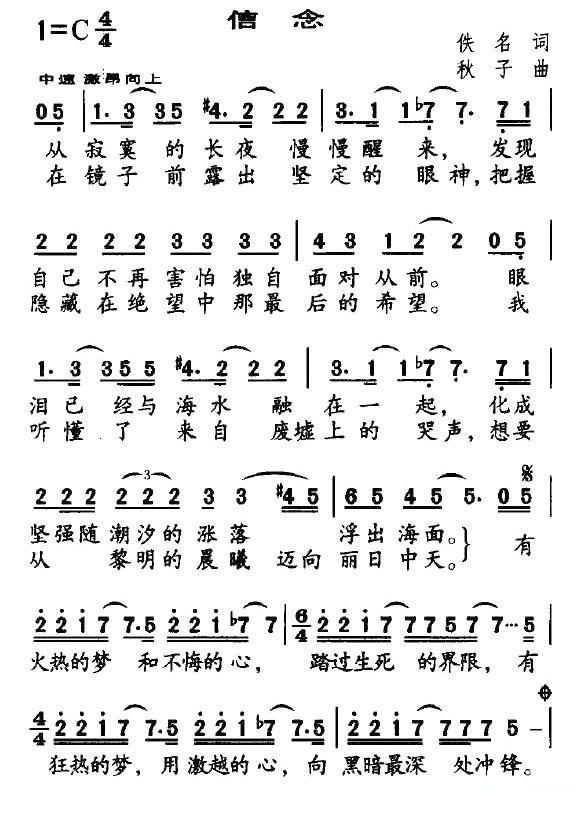 信念
1=C 4/4
佚名 词
秋子 曲
中速 激昂向上
0 5 | 1. 3 3 5 #4. 2 2 2 | 3. 1 1 b7 7. 7 1 |
从寂寞的长夜 慢慢醒来，发现
在镜子前露出 坚定的眼神，把握
2 2 2 2 3 3 3 3 | 4 3 1 2 2 0 5 |
自己不再害怕独自 面对从前。 眼
隐藏在绝望中那最 后的希望。 我
1. 3 3 5 5 #4. 2 2 2 | 3. 1 1 b7 7. 7 1 |
泪已 经与海水 融在一起，化成
听懂了 来自 废墟上的哭声，想要
2 2 2 2 2 2 3 3 #4 5 | 6 5 4 5 5. 0 5 |
坚强随潮汐的涨落 浮出海面。 有
从 黎明的晨曦 迈向丽日中天。
2 2 1 7 7. 5 2 2 1 b7 7 | 6/4 2 2 1 7 7 7 5 7 7··· 5 |
火热的梦 和不悔的心， 踏过生死 的界限，有
4/4 2 2 1 7 7. 5 2 2 1 b7 7. 5 | 2 2 1 7 7 7 7 5 – |
狂热的梦，用激越的心，向黑暗最深 处冲锋。